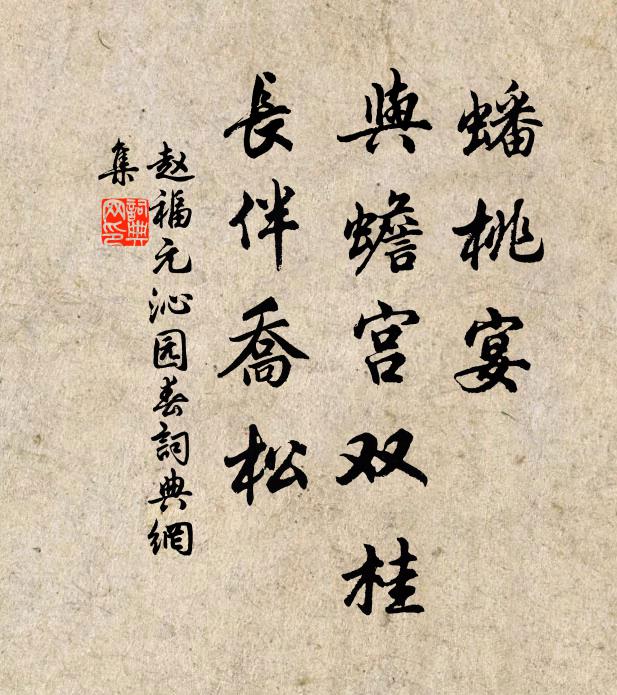 蟠桃宴
與蟾宫双桂
長伴喬松
赵福元沁园春詞典網
集
詞典
网印